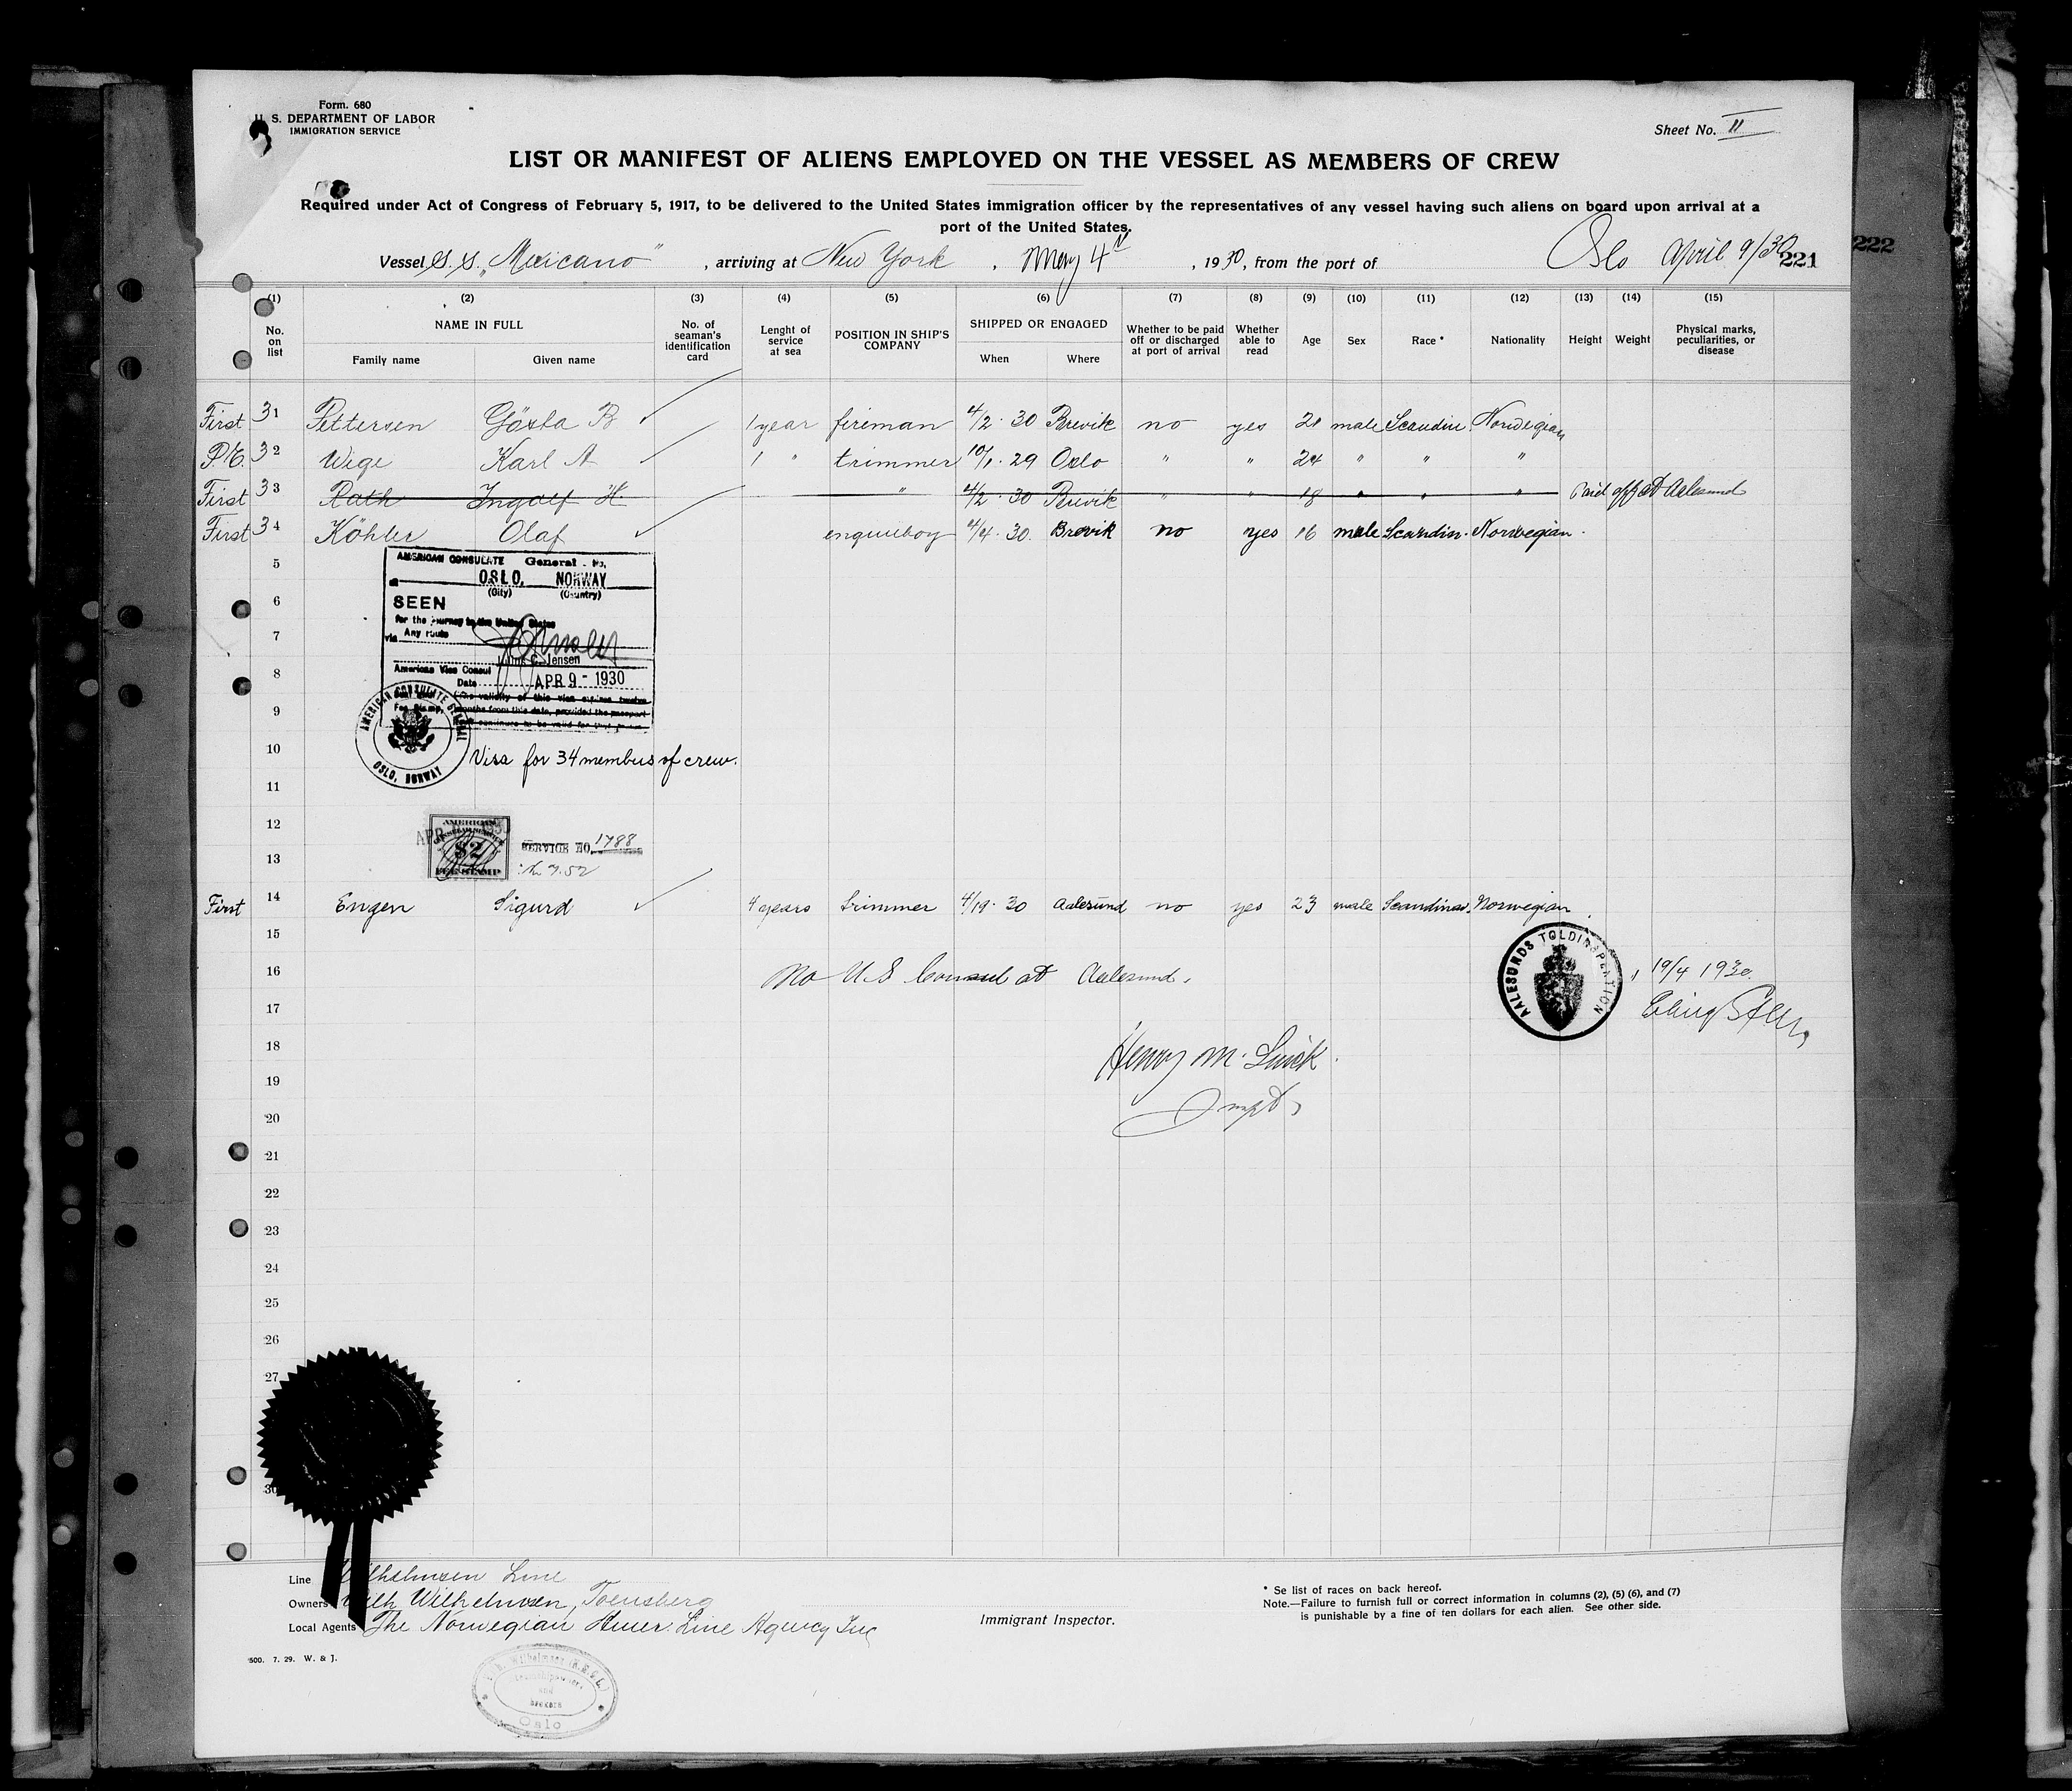 Form. 680
U. S. DEPARTMENT OF LABOR
IMMIGRATION SERVICE
Sheet No. II
LIST OR MANIFEST OF ALIENS EMPLOYED ON THE VESSEL AS MEMBERS OF CREW
Required under Act of Congress of February 5, 1917, to be delivered to the United States immigration officer by the representatives of any vessel having such aliens on board upon arrival at a
port of the United States.
Vessel S.S. „Mexicano" , arriving at New York , May 4th , 1930, from the port of Oslo April 9/30
221
222
(1) (2) (3) (4) (5) (6) (7) (8) (9) (10) (11) (12) (13) (14) (15)
No. on list
NAME IN FULL
Family name Given name
No. of seaman's identification card
Lenght of service at sea
POSITION IN SHIP'S COMPANY
SHIPPED OR ENGAGED
When Where
Whether to be paid off or discharged at port of arrival
Whether able to read
Age Sex Race * Nationality Height Weight
Physical marks, peculiarities, or disease
First 31 Pettersen Gösta B 1 year fireman 4/2 · 30 Brevik no yes 21 male Scandin. Norwegian
P.E. 32 Wige Karl A 1 " trimmer 10/1 · 29 Oslo " " 24 " " "
First 33 Rath Ingolf H. " 4/2 · 30 Brevik " " 18 " " " Paid off at Aalesund
First 34 Köhler Olaf engineboy 4/4 · 30. Brevik no yes 16 male Scandin. Norwegian.
5
AMERICAN CONSULATE General - No.
at OSLO, NORWAY
(City) (Country)
6
SEEN
for the journey to the United States
7
via Any route
C. Jensen
American Vice Consul
8
Date APR 9 - 1930
9
AMERICAN CONSULATE GENERAL
OSLO, NORWAY
10
Visa for 34 members of crew.
11
12
AMERICAN
$2
FEE STAMP
SERVICE NO. 1788
13
First 14 Engen Sigurd 4 years trimmer 4/19 · 30 Aalesund no yes 23 male Scandinav. Norwegian
15
16
No U.S Consul at Aalesund.
AALESUNDS TOLDINSPEKTION
, 19/4 1930.
17
18
Henry M.
19
Inspt
20
21
22
23
24
25
26
27
30
Line Wilhelmsen Line
Owners Wilh Wilhelmsen, Toensberg
Local Agents The Norwegian Amer. Line Agency Inc
Immigrant Inspector.
* Se list of races on back hereof.
Note.—Failure to furnish full or correct information in columns (2), (5) (6), and (7)
is punishable by a fine of ten dollars for each alien. See other side.
500. 7. 29. W. & J.
Wilhelmsen
and
Oslo